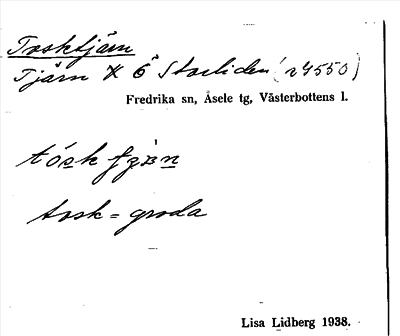 Tosktjärn
Tjärn N Ö Storliden (24550)
Fredrika sn, Åsele tg, Västerbottens l.
tosk = groda
Lisa Lidberg 1938.